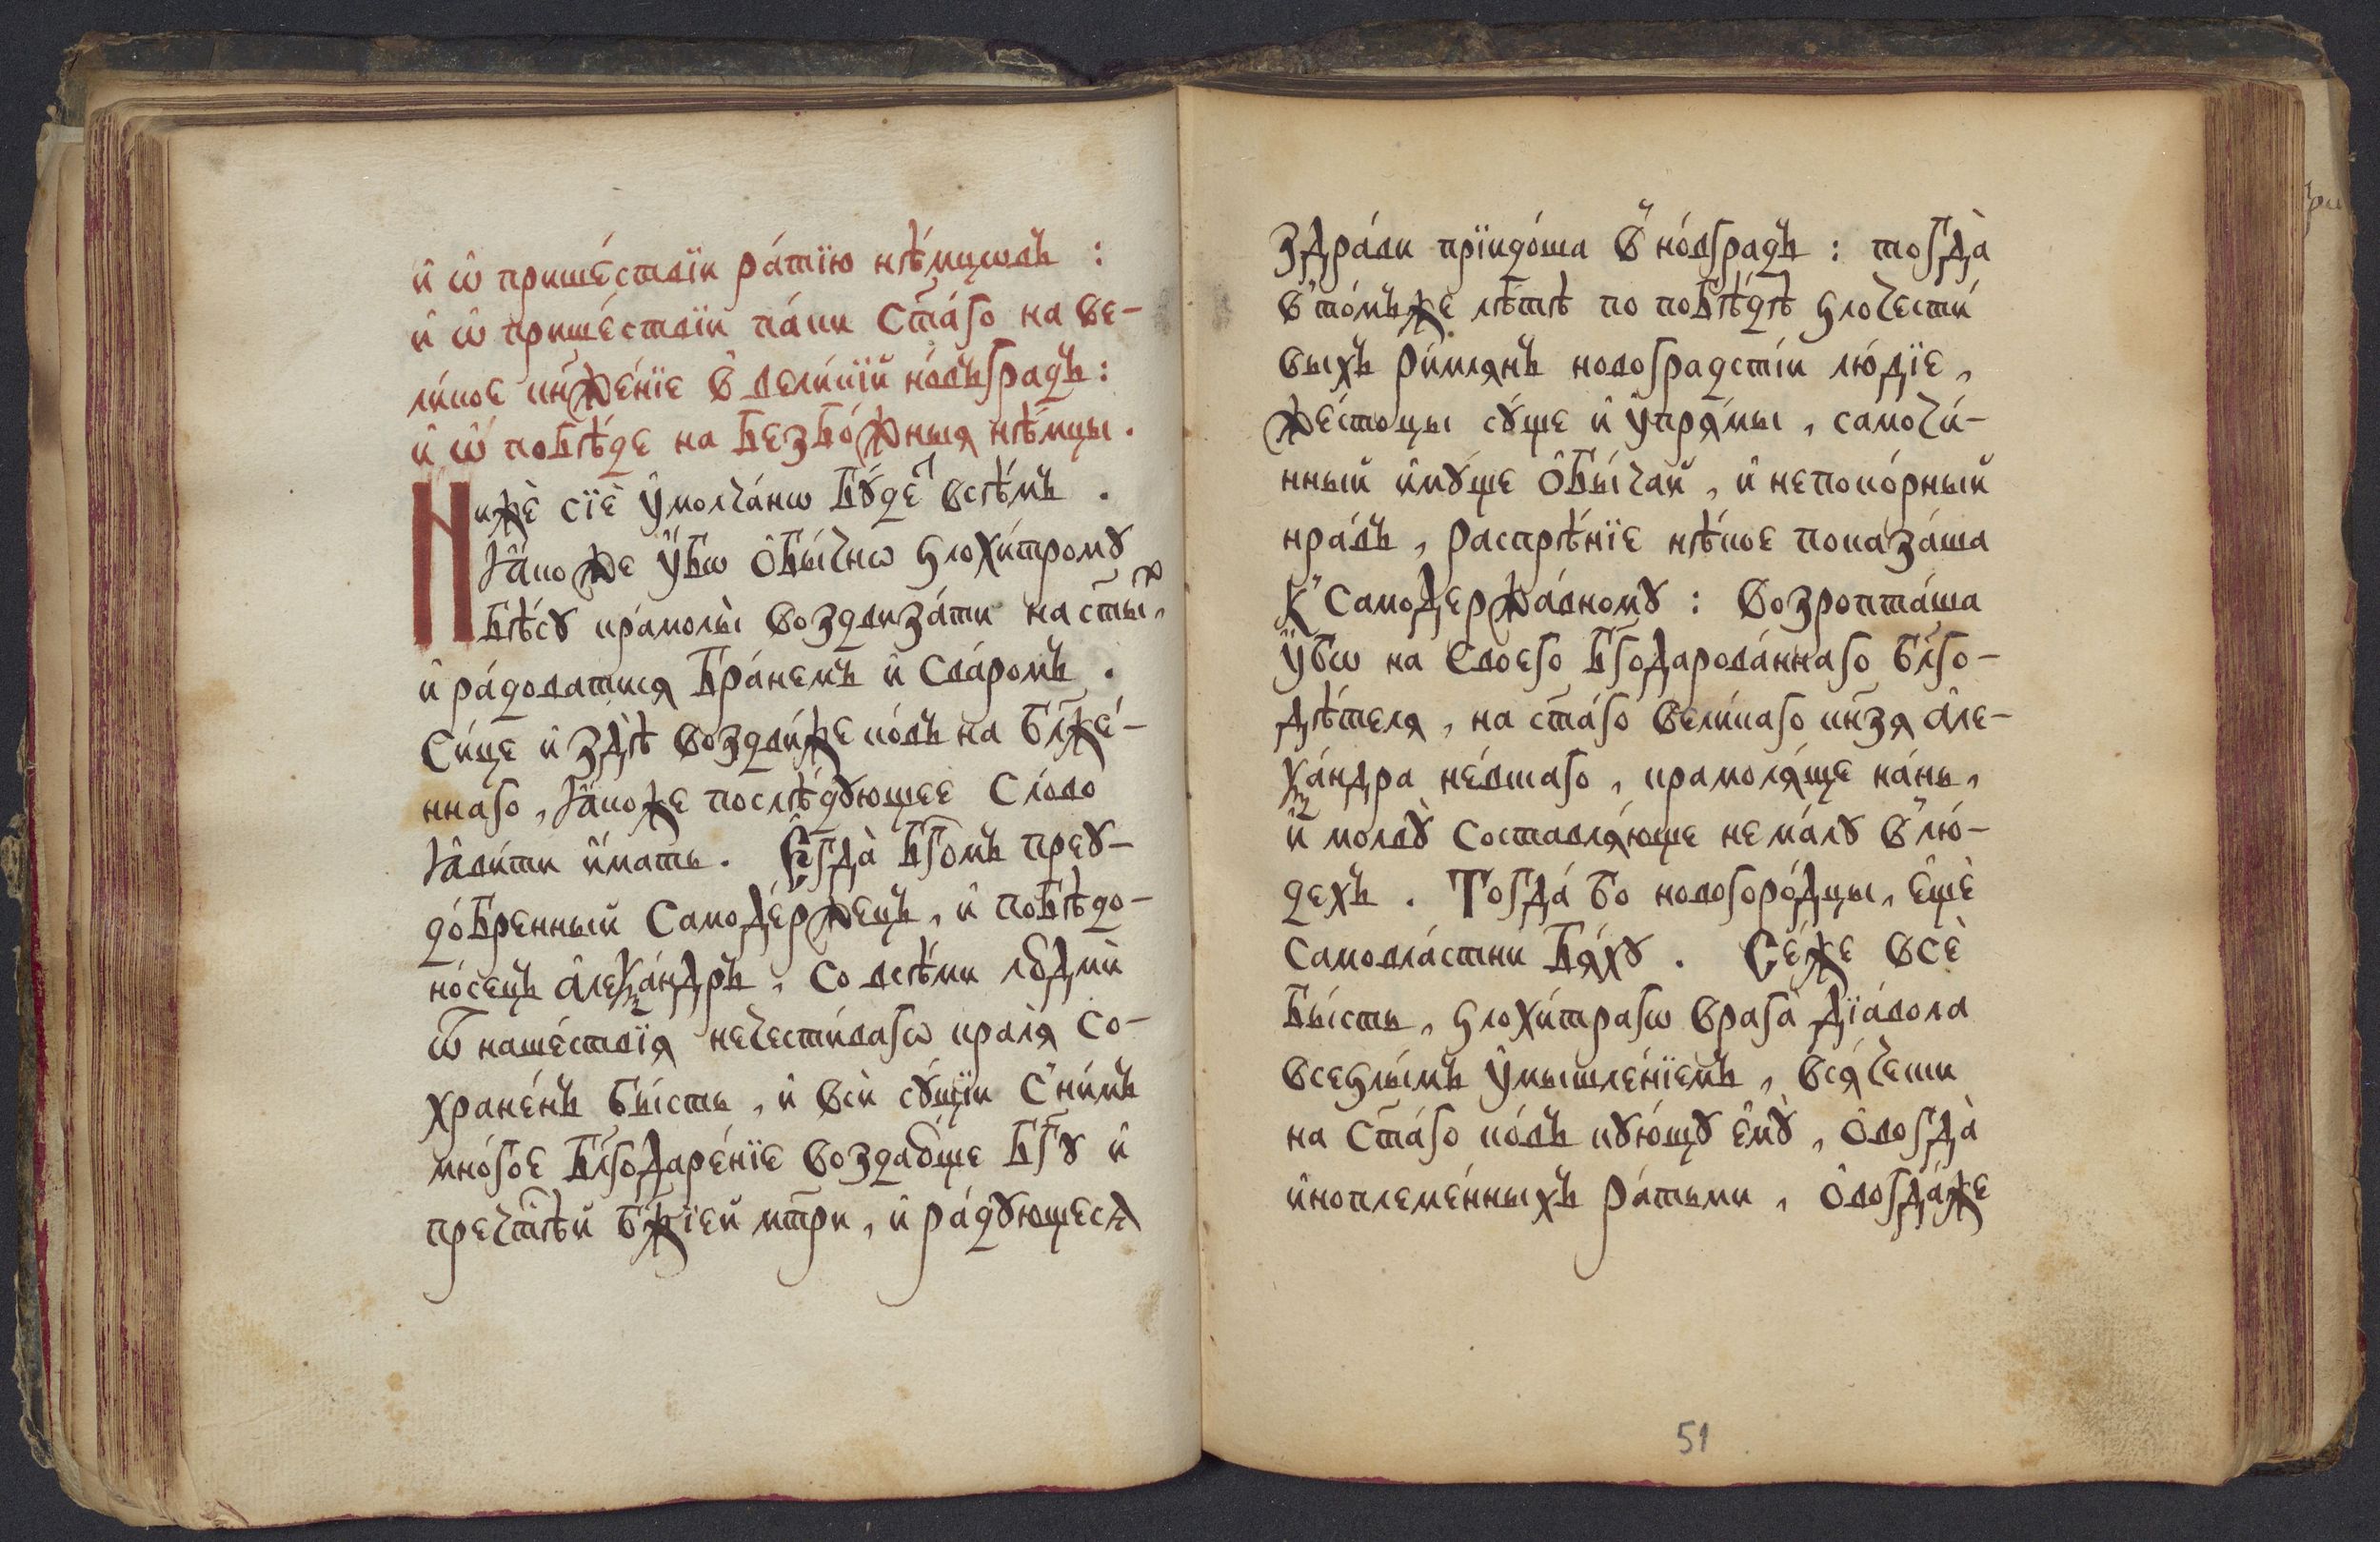 и҆ ѡ҆ прише́ствїи ра́тїю нѣ́мцѡвъ :
и҆ ѡ҆ прише́ствїи па́ки ст҃а́го на ве-
ли́кое кн҃же́нїе в҆ вели́кїй но́въградъ :
и҆ ѡ҆ побѣ́де на безбо́жныя нѣ́мцы .
Нижѐ сїѐ ᲂу҆молча́нѡ бꙋ́детъ всѣ́мъ .
Ꙗ҆́коже ᲂу҆́бѡ ѻ҆бы́чнѡ ѕлохи́тромꙋ
бѣ́сꙋ крамолы̀ воздвиза́ти на ст҃ы́хъ,
и҆ ра́доватися бра́немъ и҆ сва́ромъ .
Си́це и҆ здѣ̀ воздви́же ко́въ на бл҃же́-
ннаго, ꙗ҆́коже послѣ́дꙋющее сло́во
ꙗ҆ви́ти и҆́мать. Е҆гда̀ бг҃омъ преꙋ-
до́бренный самоде́ржецъ, и҆ побѣдо-
но́сецъ а҆леѯа́ндръ, со всѣ́ми людмѝ
ѿ наше́ствїя нечести́вагѡ краля̀ со-
хране́нъ бы́сть, и҆ всѝ сꙋ́щїи с҆ ни́мъ
мно́гое бл҃годаре́нїе воздаю́ще бг҃ꙋ и҆
пречⷭ҇тѣй бж҃їей мт҃ри, и҆ ра́дꙋющеся
здра́ви прїидо́ша в҆ но́вградъ : тогда̀
в҆ то́мъже лѣ́тѣ по побѣ́дѣ ѕлочести́
выхъ ри́млянъ новоградсті́и лю́дїе,
же́стоцы сꙋ́ще и҆ ᲂу҆пря́мы, самочи́-
нный и҆мꙋ́ще ѻ҆бы́чай, и҆ непоко́рный
нра́въ, распрѣ́нїе нѣ́кое показа́ша
к҆ самодержа́вномꙋ : возропта́ша
ᲂу҆́бѡ на своего бг҃одарова́ннаго бл҃го-
дѣ́теля, на ст҃а́го вели́каго кн҃зя а҆ле-
ѯа́ндра не́вшаго, крамоля́ще на́нь,
и҆ молвꙋ̀ составля́юще нема́лꙋ в҆ лю́-
дехъ . Тогда́ бо новогоро́дцы, е҆щѐ
самовла́стни бя́хꙋ . Се́же всѐ
бы́сть, ѕлохи́трагѡ врага̀ дїа́вола
всеѕлы́мъ ᲂу҆мышле́нїемъ, вся́чески
на ст҃а́го ко́въ кꙋю́щꙋ е҆мꙋ̀, ѻ҆вогда̀
и҆ноплеме́нныхъ ра́тьми, ѻ҆вогда́же
51